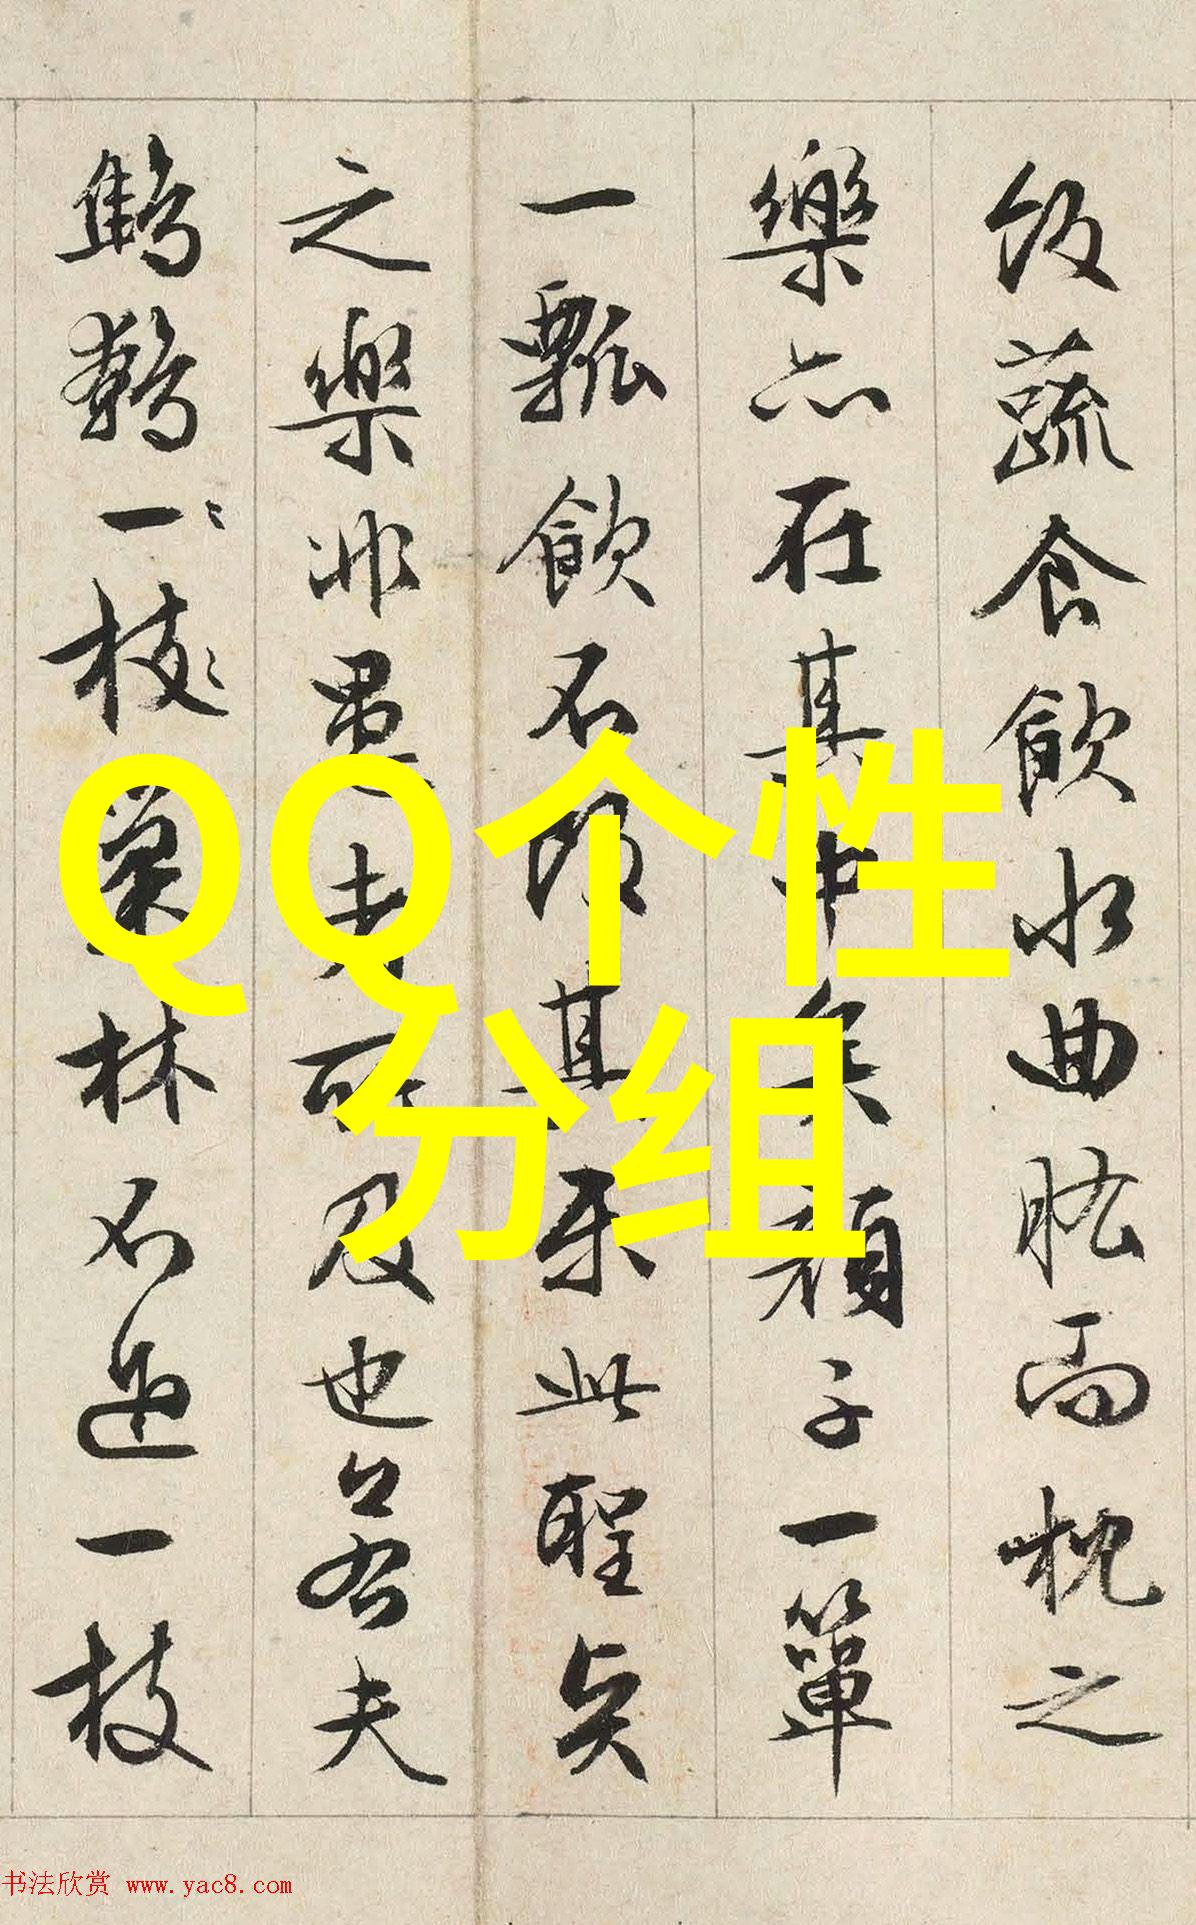 飯蔬食飲水曲肱而枕之
樂亦在其中矣顔子一簞
一瓢飲不改其樂此聖賢
之樂非愚者所及也若夫
鷦鷯一〻枝〻巢林不過一枝
QQ个性
分组
书法欣赏 www.yac8.com